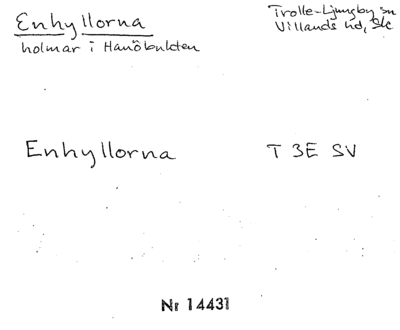 Enhyllorna
holmar i Hanöbukten
Trolle-Ljungby sn
Villands hd, Sk
Enhyllorna T 3E SV
Nr 14431